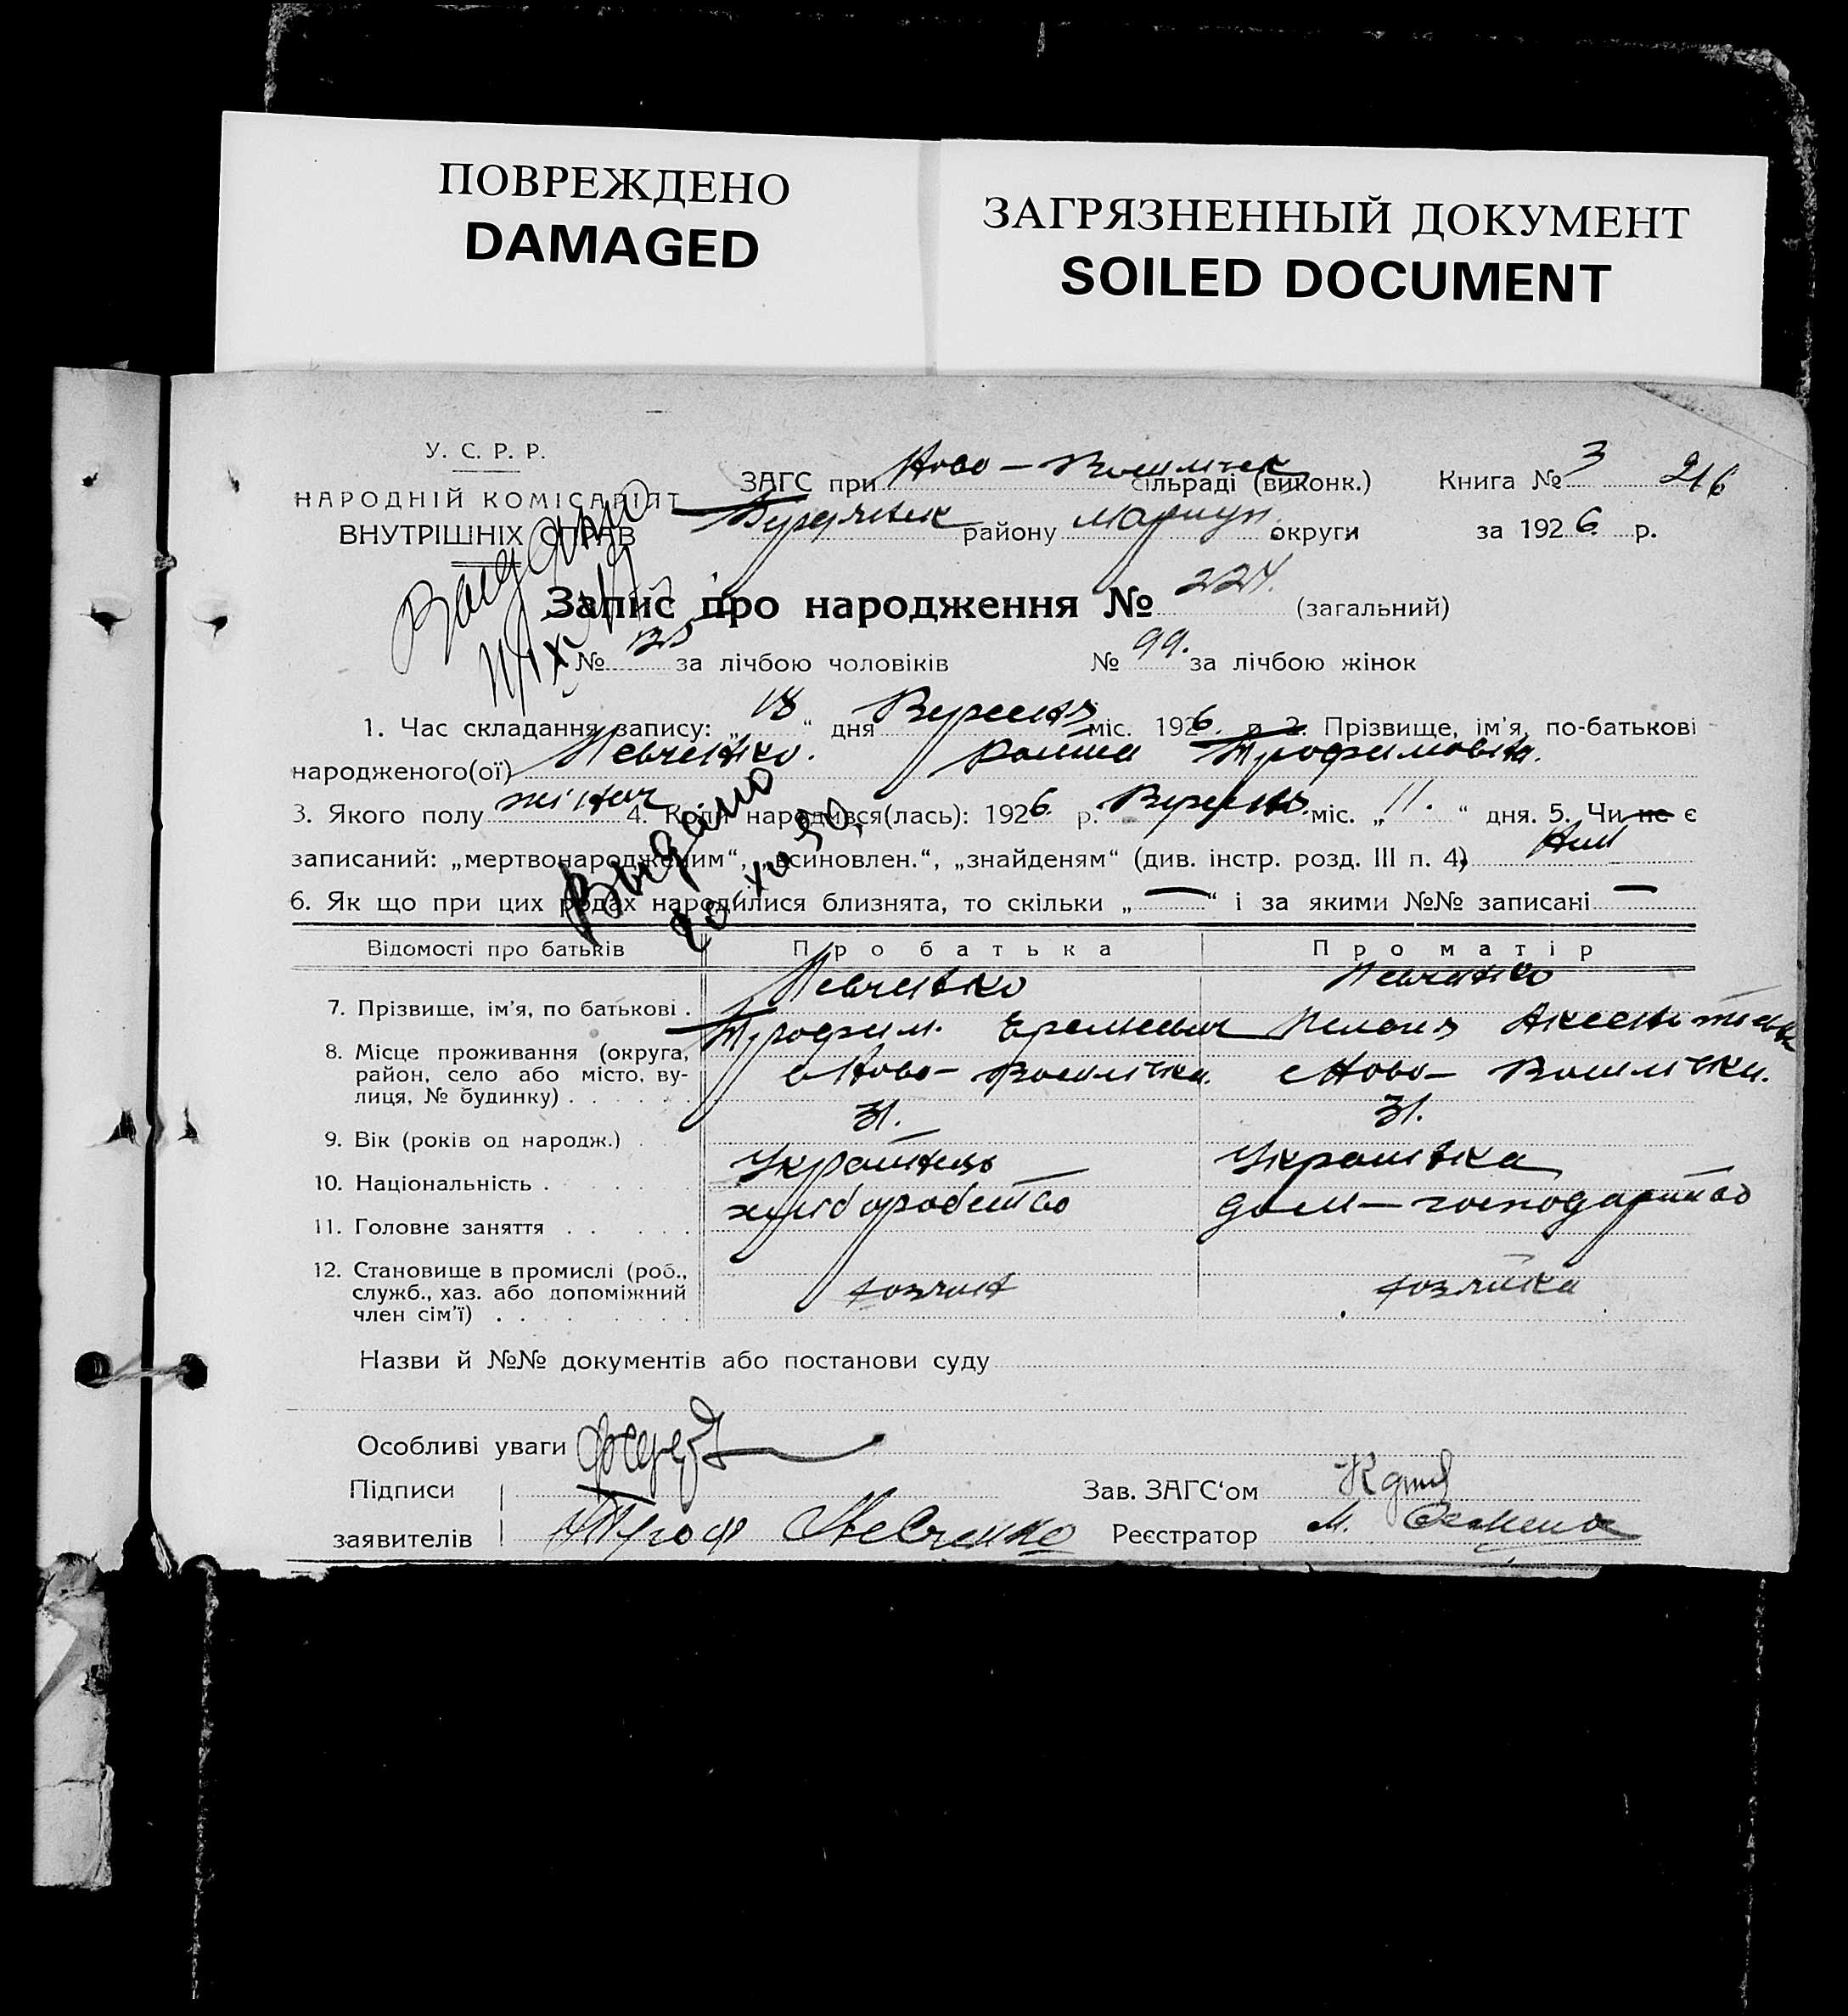 ПОВРЕЖДЕНО
DAMAGED
ЗАГРЯЗНЕННЫЙ ДОКУМЕНТ
SOILED DOCUMENT
У. С. Р. Р.
НАРОДНІЙ КОМІСАРІЯТ
ВНУТРІШНІХ СПРАВ
ЗАГС при Ново-Василічек сільраді (виконк.) Книга № 3 216
району Маріуп. округи за 1926 р.
Запис про народження № 224. (загальний)
№ 125 за лічбою чоловіків № 99. за лічбою жінок
1. Час складання запису: „18“ дня Вересня міс. 1926. р. 2. Прізвище, ім'я, по-батькові
народженого(ої) Левченко. Трофимовна.
3. Якого полу жіноч 4. Коли народився(лась): 1926. р. Вересня міс. „11.“ дня. 5. Чи не є
записаний: „мертвонародженим“, „всиновлен.“, „знайденям“ (див. інстр. розд. III п. 4) Ні
6. Як що при цих родах народилися близнята, то скільки „—“ і за якими №№ записані —
Видано
Відомості про батьків Про батька Про матір
Левченко Левченко
7. Прізвище, ім'я, по батькові . Трофим Еремеевич Пелагия
8. Місце проживання (округа, район, село або місто, вулиця, № будинку) . . . . . с Ново-Василічка. с Ново-Василічка.
9. Вік (років од народж.) . 31. 31.
10. Національність . . . . . Українець Українка
11. Головне заняття . . . . хліборобство дом-господарство
12. Становище в промислі (роб., служб., хаз. або допоміжний член сім'ї) . . . . . . хозяин хозяйка
Назви й №№ документів або постанови суду
Особливі уваги
Підписи Зав. ЗАГС'ом
заявителів Троф Левченко Реєстратор М.